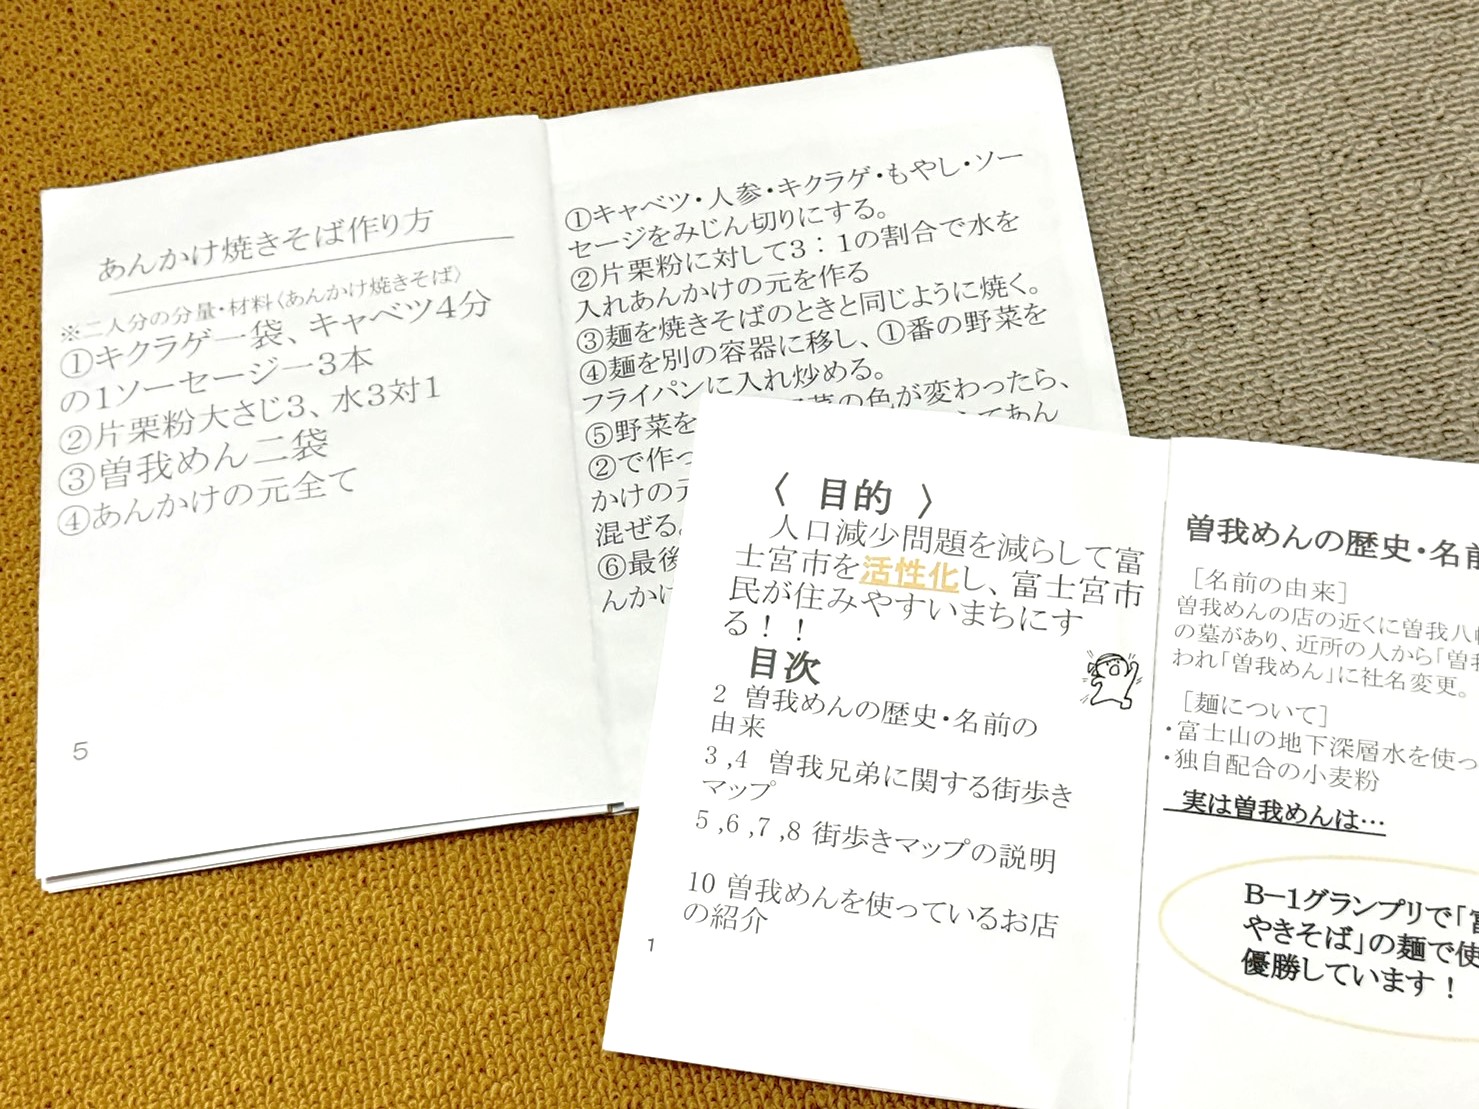 あんかけ焼きそば作り方
※二人分の分量・材料〈あんかけ焼きそば〉
①キクラゲ一袋、キャベツ4分
の1ソーセージー3本
②片栗粉大さじ3、水3対1
③曽我めん二袋
④あんかけの元全て
5
①キャベツ・人参・キクラゲ・もやし・ソー
セージをみじん切りにする。
②片栗粉に対して3：1の割合で水を
入れあんかけの元を作る
③麺を焼きそばのときと同じように焼く。
④麺を別の容器に移し、①番の野菜を
フライパンに入れ炒める。
⑤野菜を
の色が変わったら、
②で作っ
てあん
かけの元
混ぜる。
⑥最後
んかけ
〈 目的 〉
人口減少問題を減らして富
士宮市を活性化し、富士宮市
民が住みやすいまちにす
る！！
目次
2 曽我めんの歴史・名前の
由来
3,4 曽我兄弟に関する街歩き
マップ
5,6,7,8 街歩きマップの説明
10 曽我めんを使っているお店
の紹介
1
曽我めんの歴史・名前
［名前の由来］
曽我めんの店の近くに曽我八幡
の墓があり、近所の人から「曽我
われ「曽我めん」に社名変更。
［麺について］
・富士山の地下深層水を使っ
・独自配合の小麦粉
実は曽我めんは…
B－1グランプリで「富
やきそば」の麺で使
優勝しています！